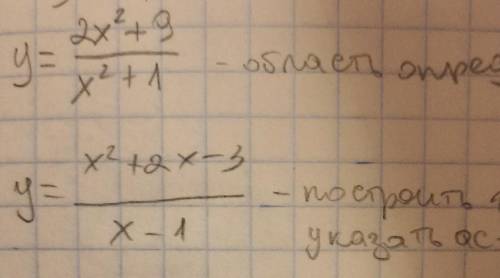 y = (2x² + 9)/(x² + 1) - область опред
y = (x² + 2x - 3)/(x - 1) - построить
указать ас